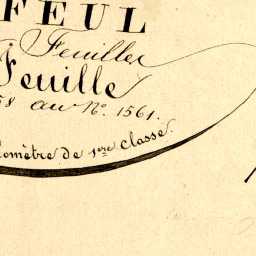 FEUL
Feuilles
Feuille
58 au N.º 1561.
lomètre de 1ère Classe.